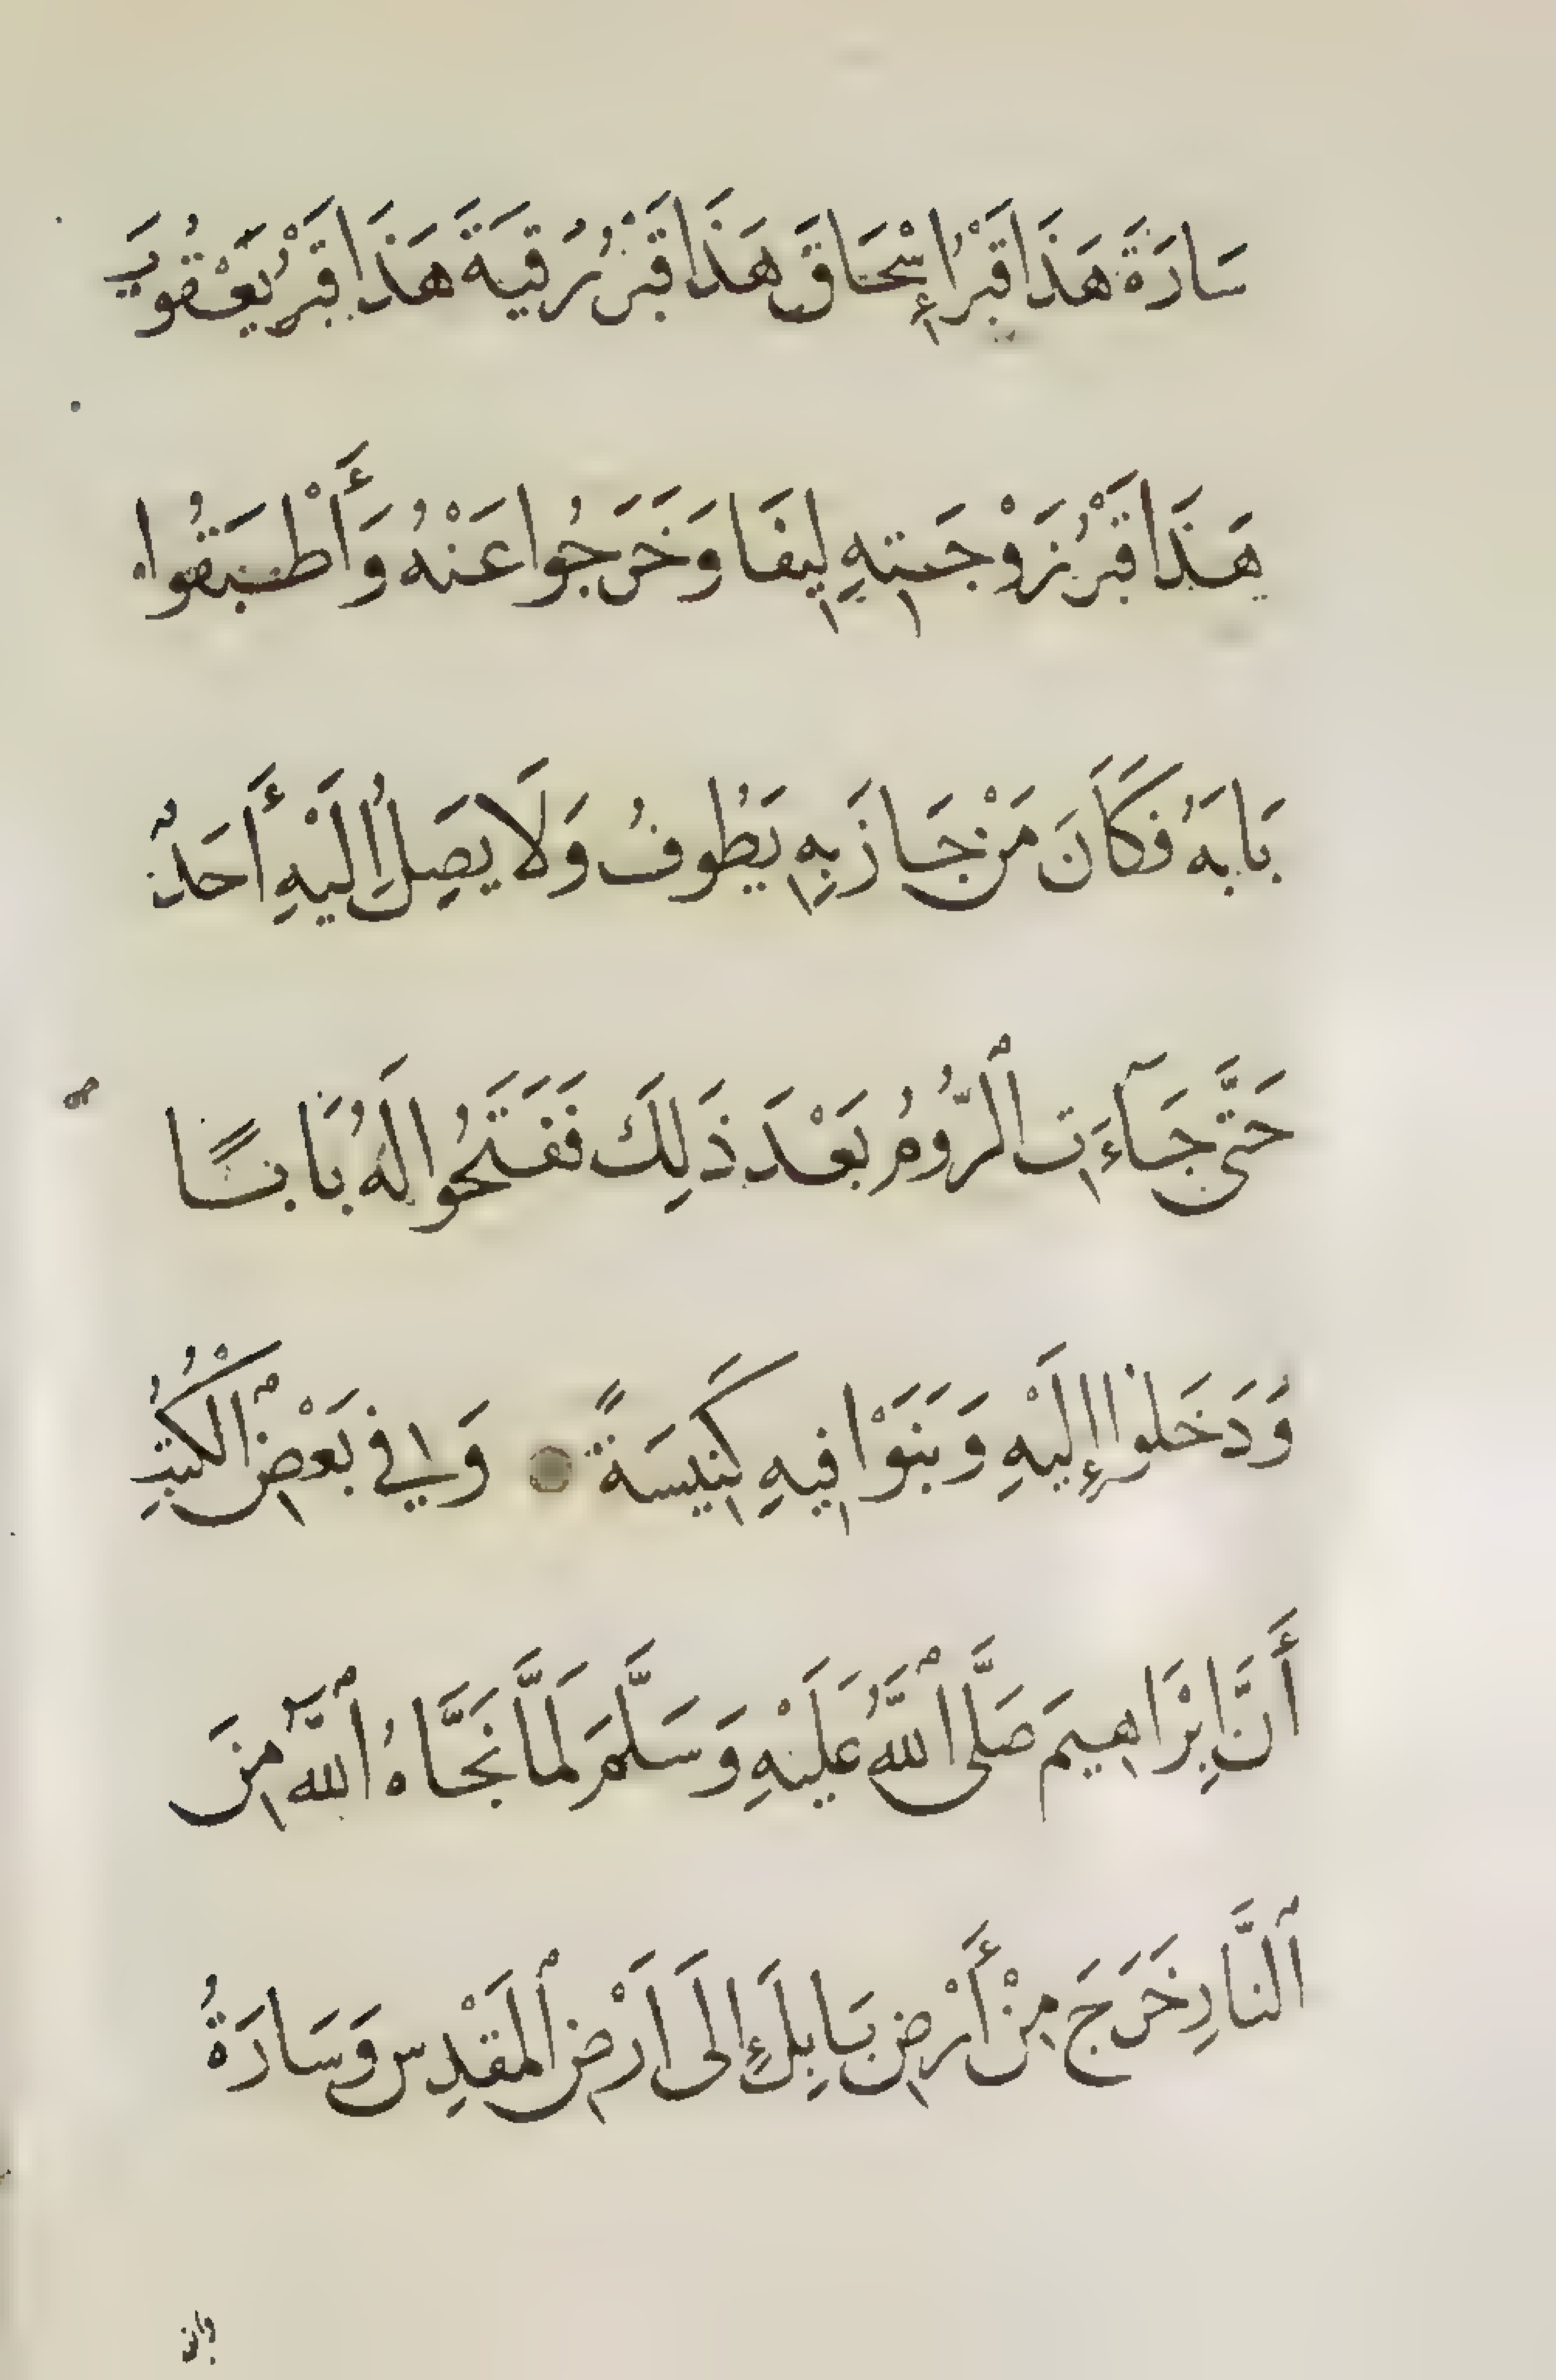 سَارَةَ هَذَا قَبْرُ إِسْحَاقَ هَذَا قَبْرُ رُقيَةَ هَذَا قَبْرُ يَعْقُوبَ
هَذَا قَبْرُ زَوْجَتِهِ لِيفَا وَخَرَجُوا عَنْهُ وَأَطْبَقُوا
بَابَهُ فَكَانَ مَنْ جَازَ بِهِ يَطُوفُ وَلَا يَصِلُ إِلَيْهِ أَحَدٌ
حَتَّى جَآءَتِ ٱلرُّومُ بَعْدَ ذَلِكَ فَفَتَحُوا لَهُ بَابًا
وَدَخَلُوا إِلَيْهِ وَبَنَوْا فِيهِ كَنِيسَةً وَفِي بَعْضِ ٱلْكُتُبِ
أَنَّ إِبْرَاهِيمَ صَلَّى ٱللَّهُ عَلَيْهِ وَسَلَّمَ لَمَّا نَجَّاهُ ٱللَّهُ مِنَ
ٱلنَّارِ خَرَجَ مِنْ أَرْضِ بَابِلَ إِلَى أَرْضِ ٱلْمَقْدِسِ وَسَارَةُ